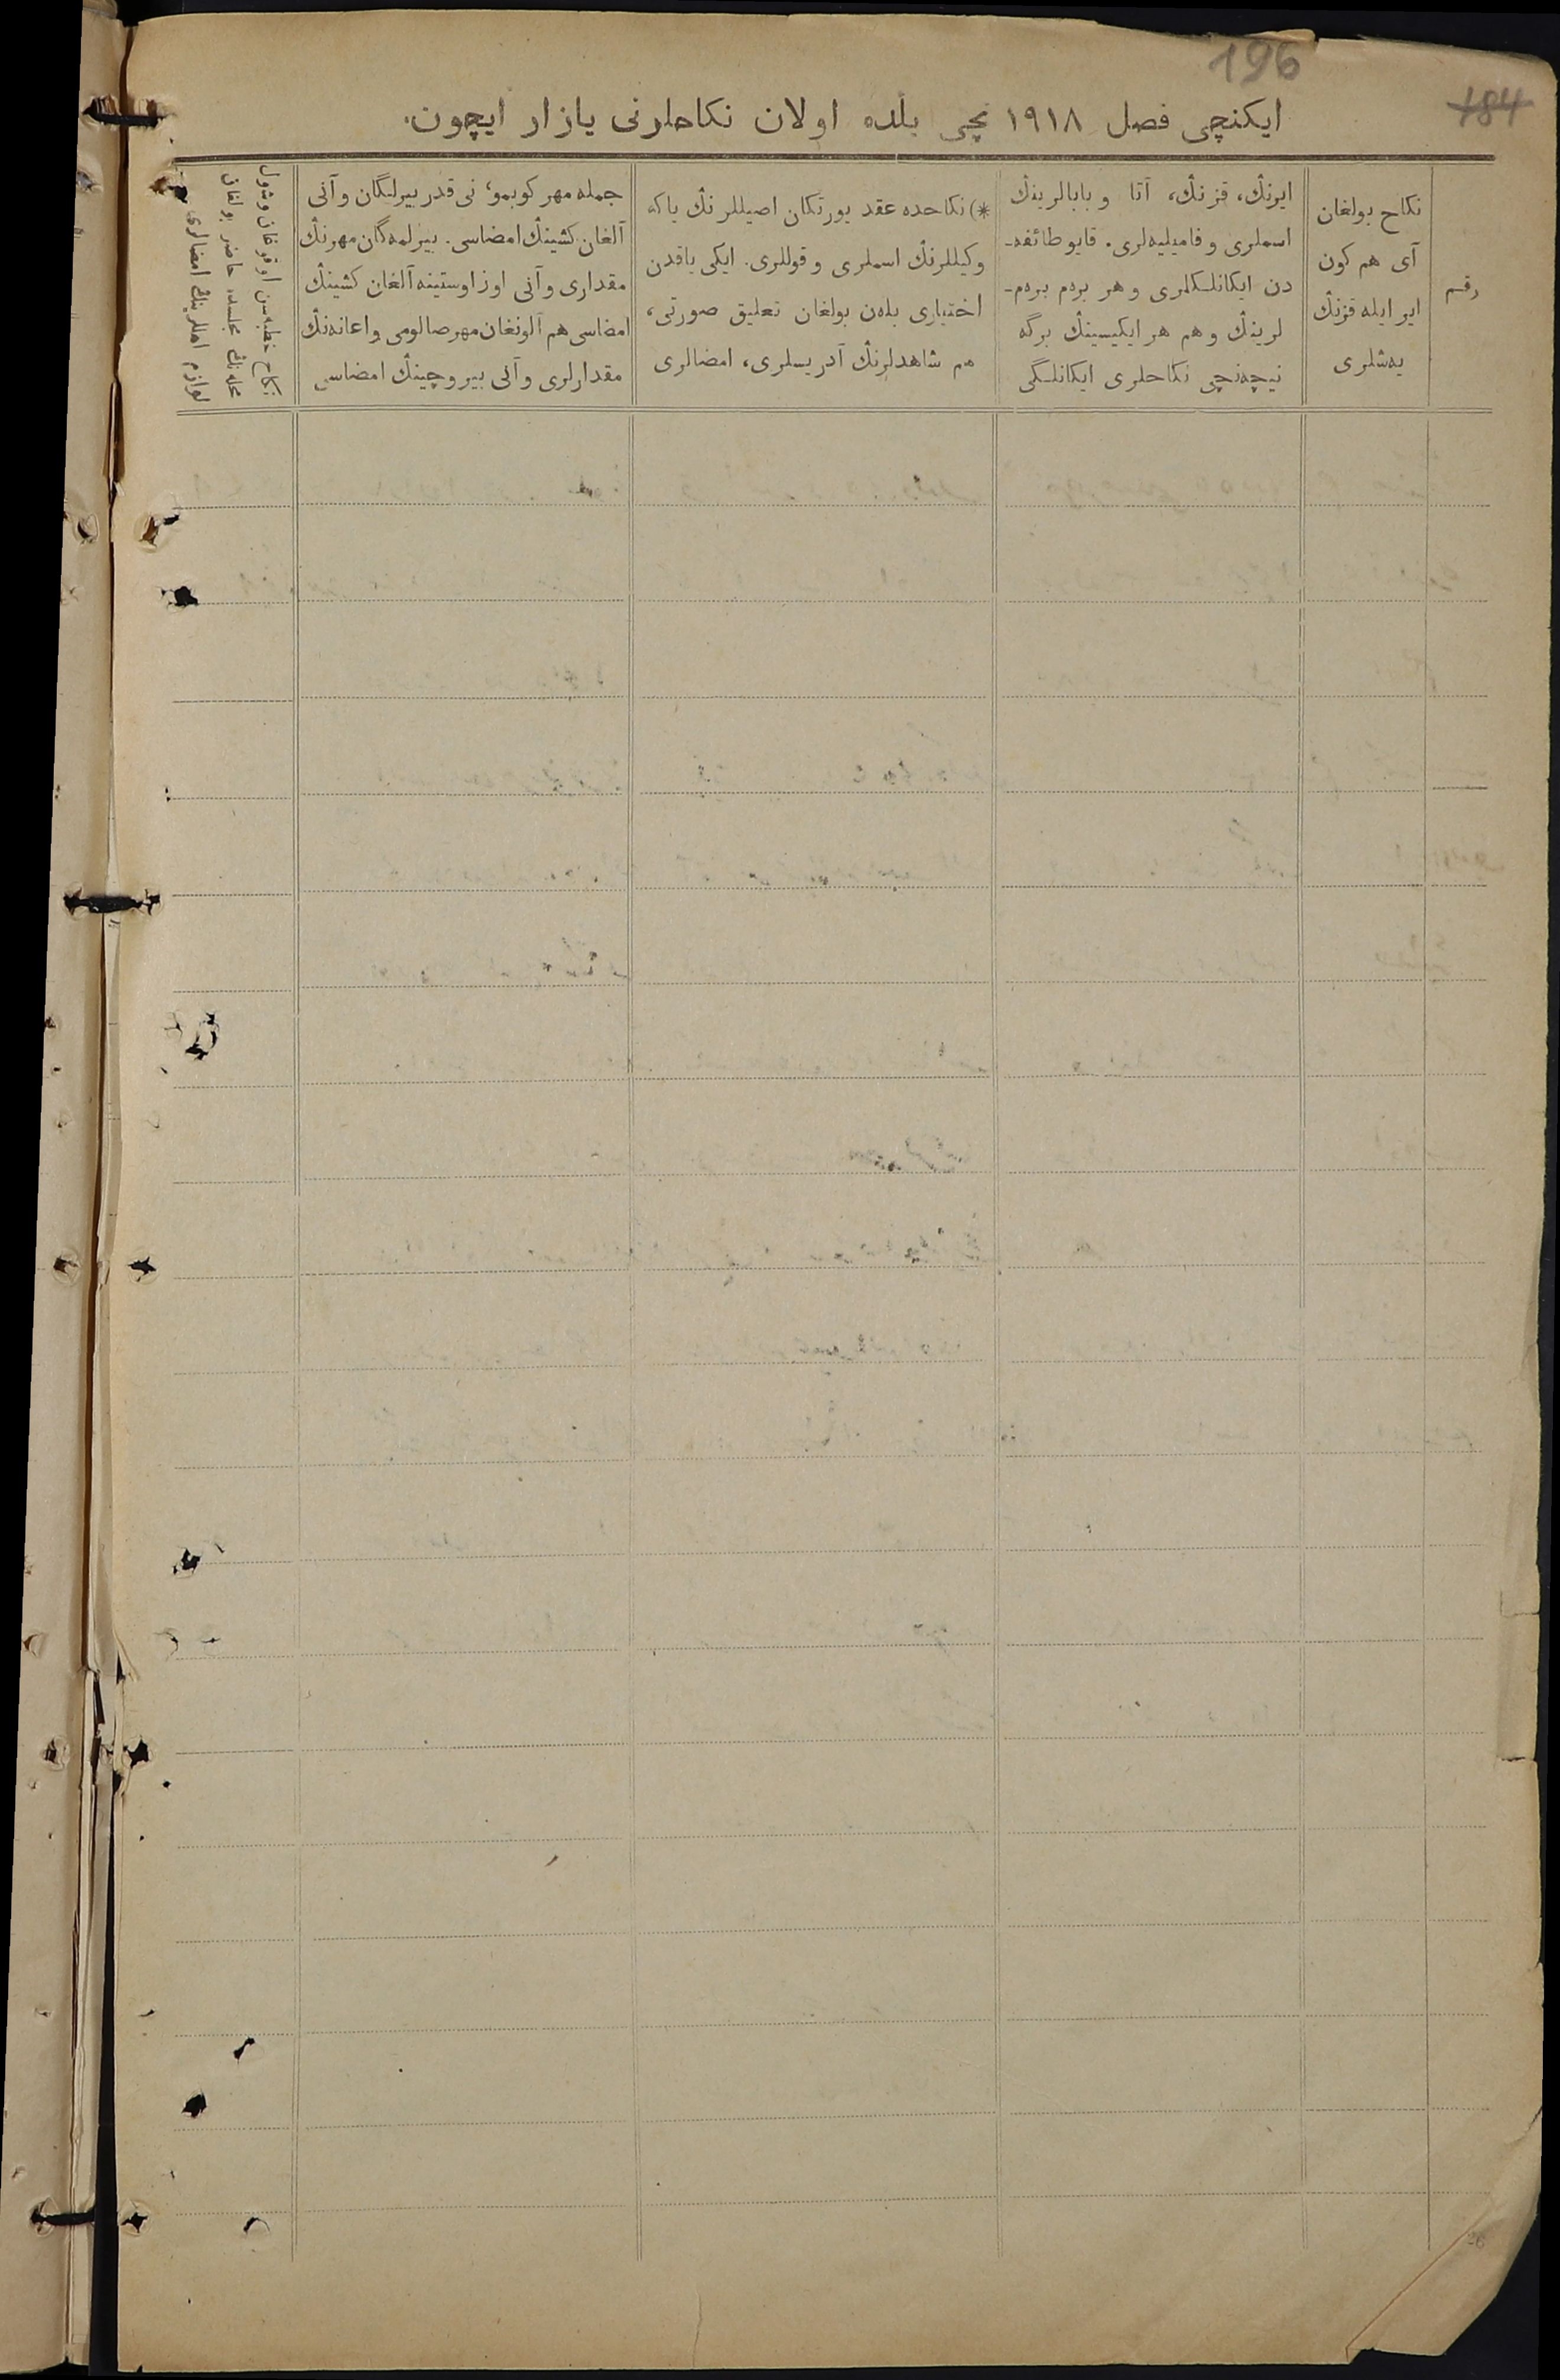 196
184
ایکنچی فصل ۱۹۱۸ نچی یلده اولان نکاحلرنی یازار ایچون.
رقم
نکاح بولغان
آی هم کون
ایر ایله قزنڭ
یەشلری
ایرنڭ، قزنڭ، آتا و بابالرینڭ
اسملری و فامیلیەلری. قایو طائفە-
دن ایکانلکلری و هر بردم بردم-
لرینڭ و هم هر ایکیسینڭ برگە
نیچەنچی نکاحلری ایکانلگی
*) نکاحدە عقد یورتکان اصیللرنڭ یاکە
وکیللرنڭ اسملری و قوللری. ایکی یاقدن
اختیاری بلەن بولغان تعلیق صورتی،
هم شاهدلرنڭ آدریسلری، امضالری
جملە مهر کوبمو، نی قدر بیرلگان و آنی
آلغان کشینڭ امضاسی. بیرلمەگان مهرنڭ
مقداری و آنی اوز اوستینە آلغان کشینڭ
امضاسی هم آلونغان مهر صالومی و اعانەنڭ
مقدارلری و آنی بیروچینڭ امضاسی
نکاح خطبەسن اوقوغان و شول
محلەنڭ مجلسدە حاضر بولغان
لوازم اهللرینڭ امضالری
26